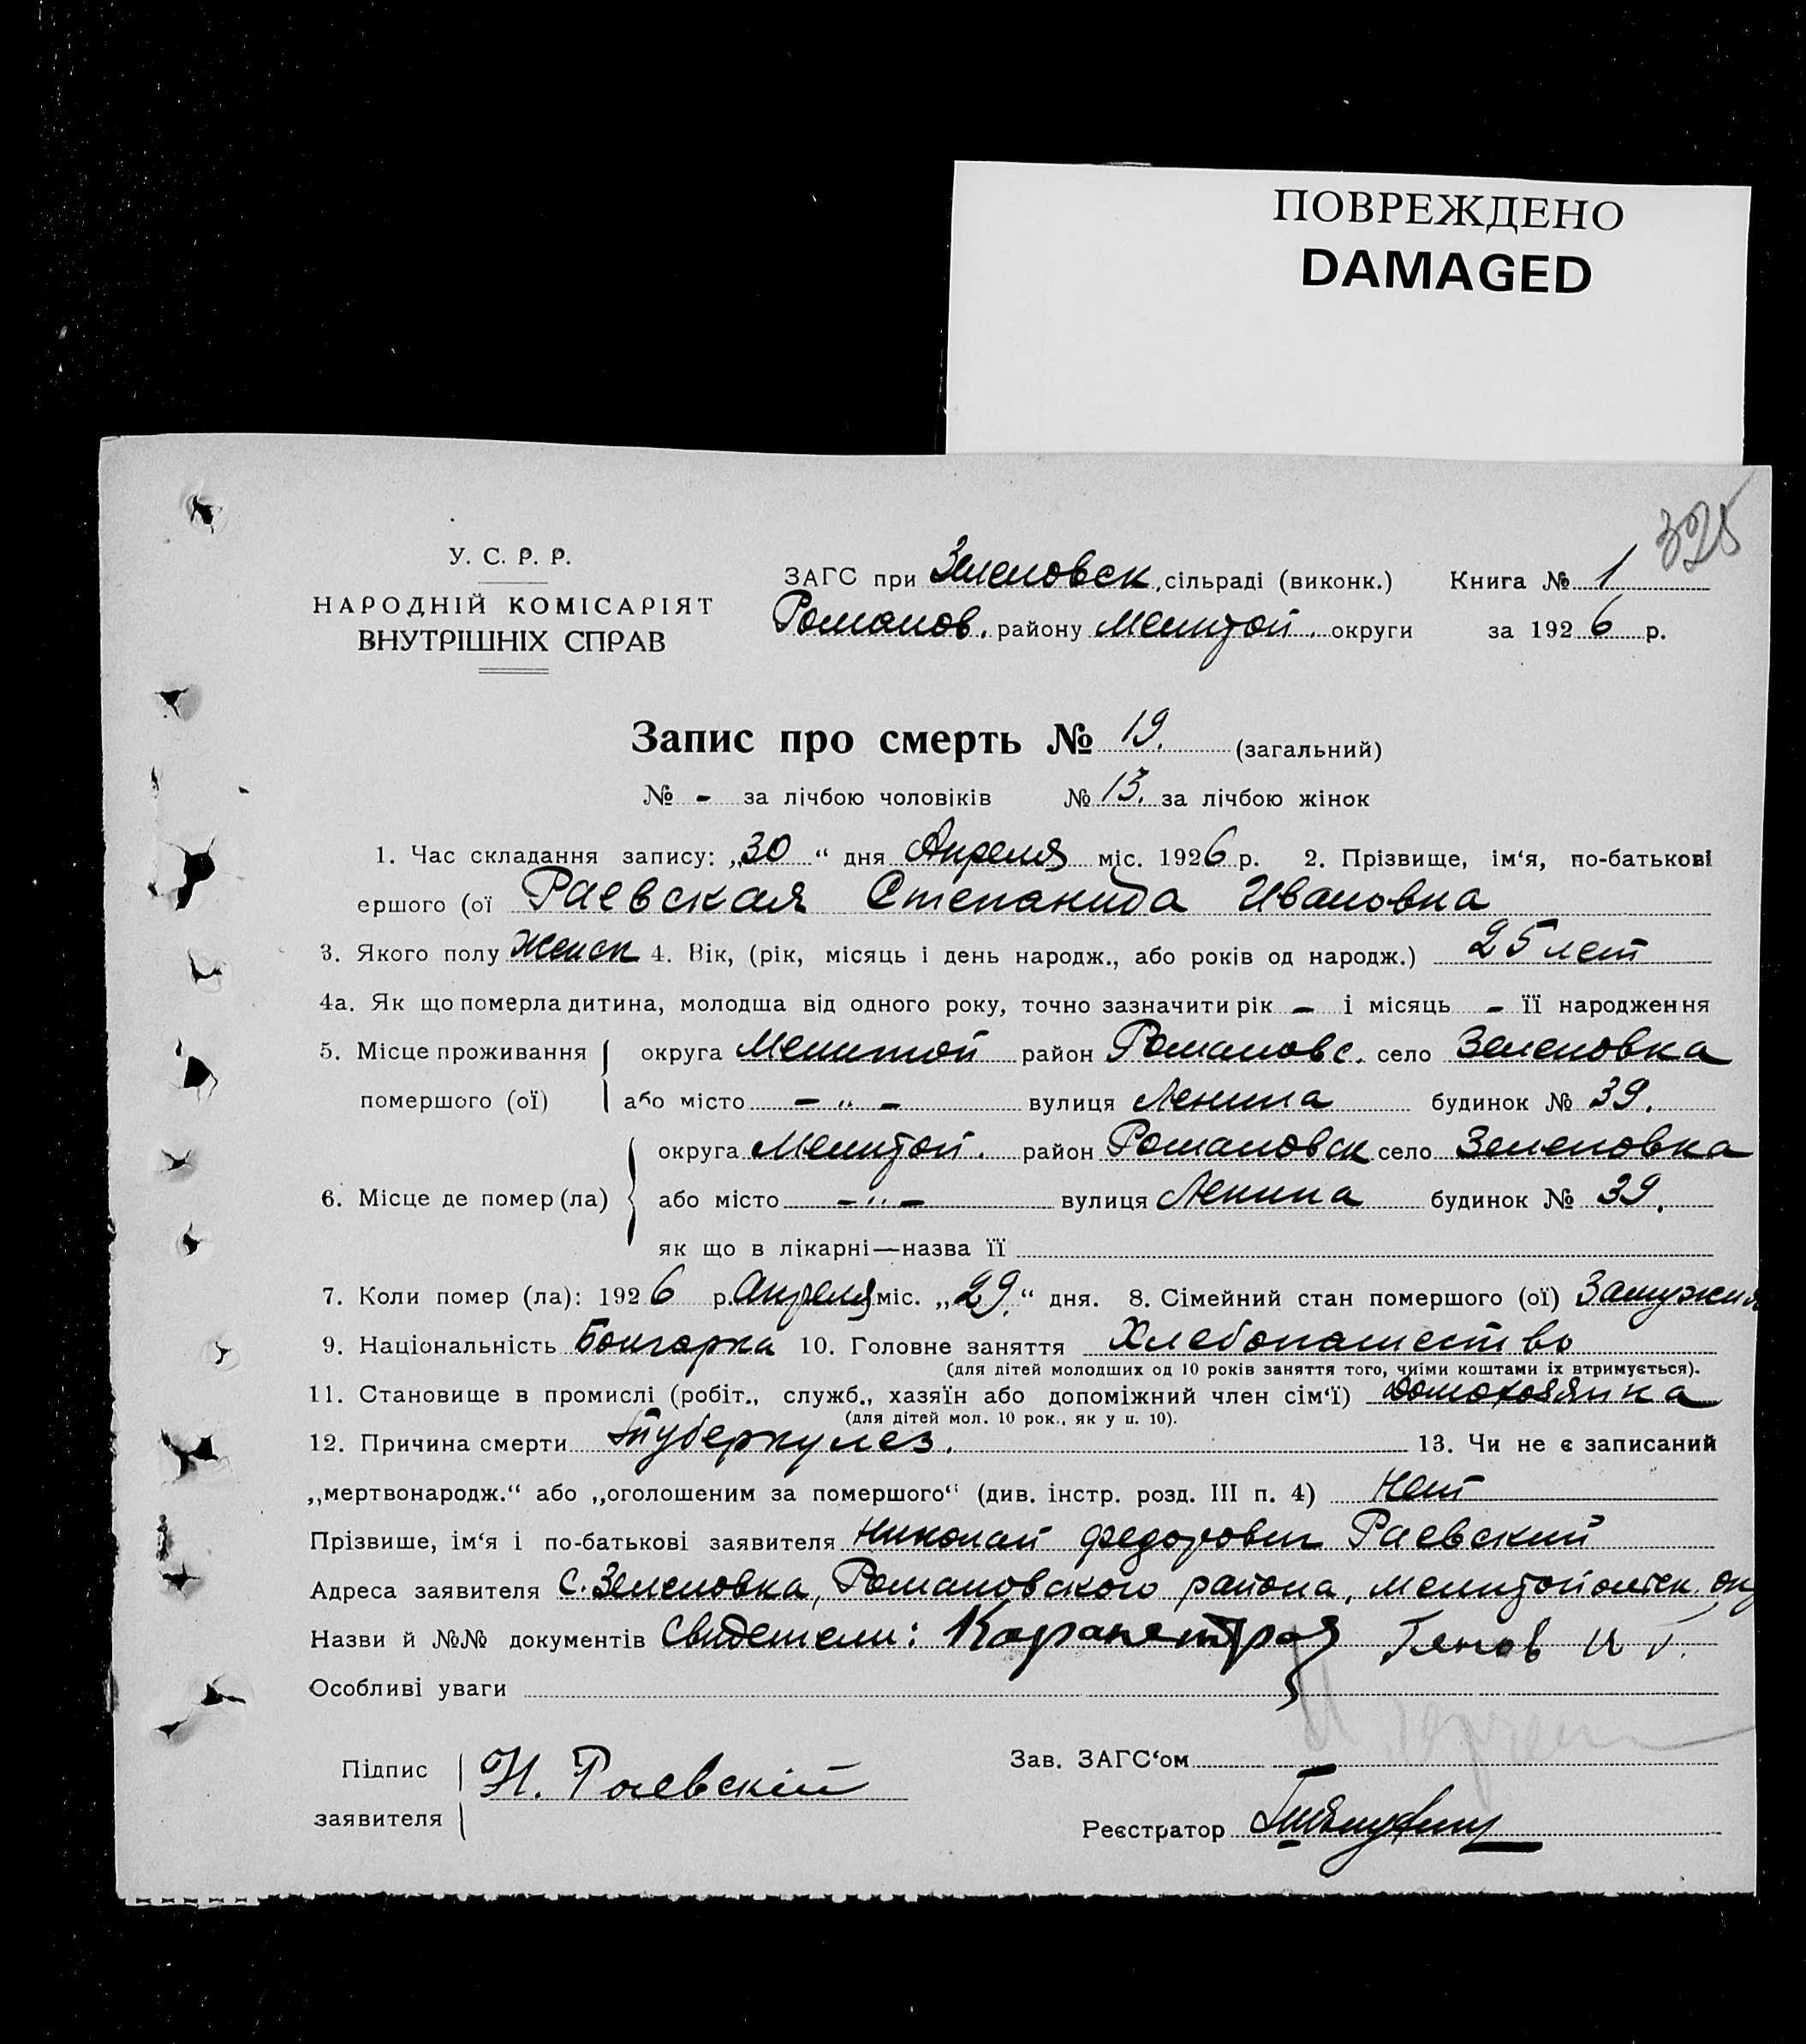 ПОВРЕЖДЕНО
DAMAGED
325
У. С. Р. Р.
НАРОДНІЙ КОМІСАРІЯТ
ВНУТРІШНІХ СПРАВ
ЗАГС при Зеленовск, сільраді (виконк.) Книга № 1
Романов. району Мелитоп. округи за 1926 р.
Запис про смерть № 19. (загальний)
№ - за лічбою чоловіків № 13. за лічбою жінок
1. Час складання запису: „30“ дня Апреля міс. 1926 р. 2. Прізвище, ім‘я, по-батькові
ершого (ої Раевская Степанида Ивановна
3. Якого полу Женск 4. Вік, (рік, місяць і день народж., або років од народж.) 25 лет
4а. Як що померла дитина, молодша від одного року, точно зазначити рік - і місяць - її народження
5. Місце проживання округа Мелитоп район Романовс. село Зеленовка
помершого (ої) або місто - „ - вулиця Ленина будинок № 39.
округа Мелитоп. район Романовск село Зеленовка
6. Місце де помер (ла) або місто - „ - вулиця Ленина будинок № 39.
як що в лікарні—назва її
7. Коли помер (ла): 1926 р. Апреля міс. „29.“ дня. 8. Сімейний стан помершого (ої) Замужняя
9. Національність Болгарка 10. Головне заняття Хлебопашество
(для дітей молодших од 10 років заняття того, чиїми коштами їх втримується).
11. Становище в промислі (робіт., служб., хазяїн або допоміжний член сім‘ї) домохозяйка
(для дітей мол. 10 рок., як у п. 10).
12. Причина смерти Туберкулез. 13. Чи не є записаний
„мертвонародж.“ або „оголошеним за помершого“ (див. інстр. розд. III п. 4) Нет
Прізвише, ім‘я і по-батькові заявителя Николай Федорович Раевский
Адреса заявителя С. Зеленовка, Романовского района, Мелитопольск. ок
Назви й №№ документів Свидетели: Генов И
Особливі уваги
Підпис
заявителя
Н. Раевскій
Зав. ЗАГС‘ом
Реєстратор